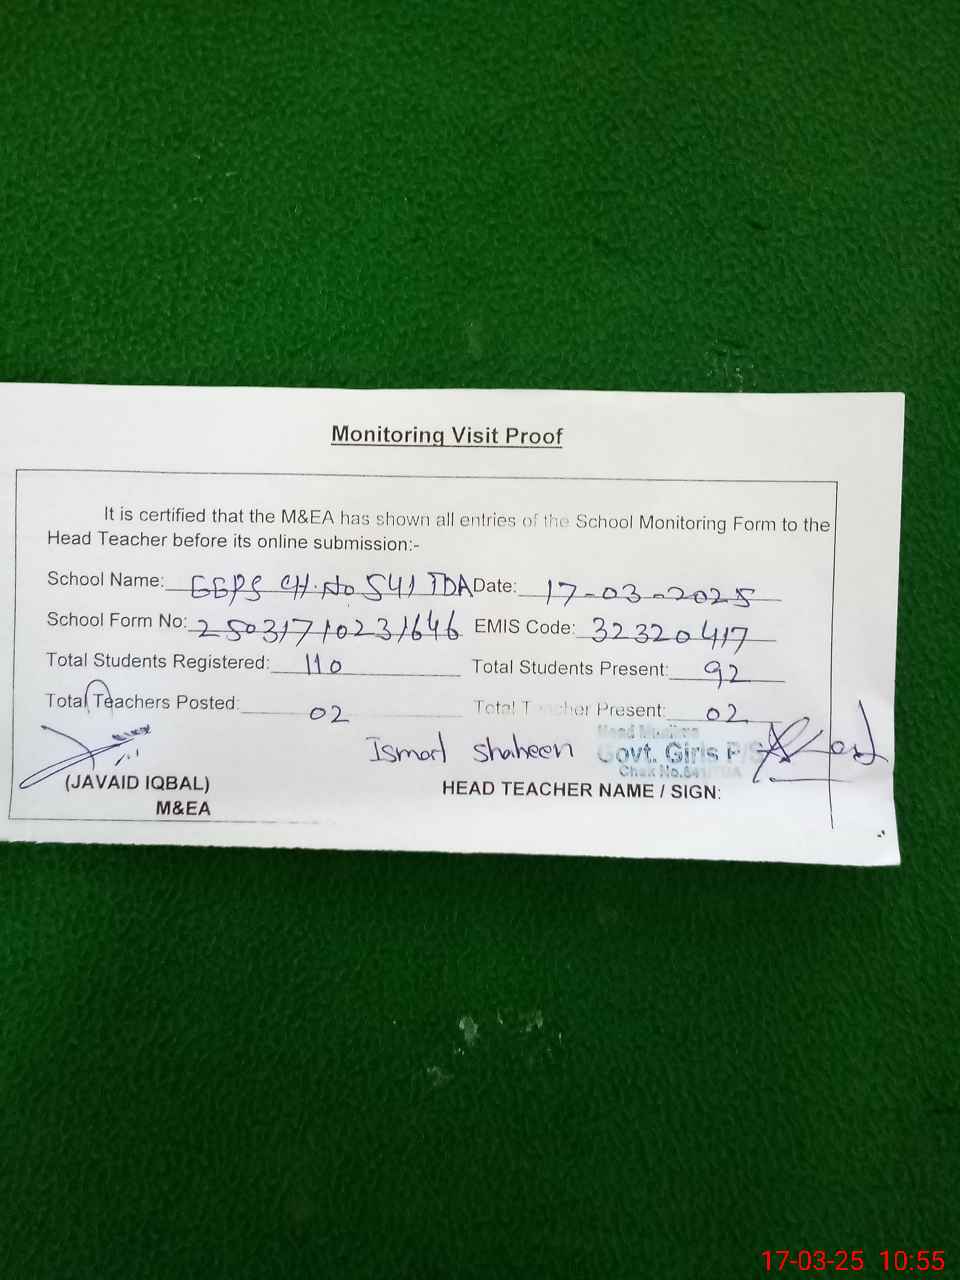 Monitoring Visit Proof
It is certified that the M&EA has shown all entries of the School Monitoring Form to the
Head Teacher before its online submission:-
School Name: GGPS CH.No 541 TDA Date: 17-03-2025
School Form No: 25031710231646 EMIS Code: 32320417
Total Students Registered: 110 Total Students Present: 92
Total Teachers Posted: 02 Total Teacher Present: 02
Ismat shaheen
Head Muslima
Govt. Girls P/S
Chak No.541/TDA
(JAVAID IQBAL) HEAD TEACHER NAME / SIGN:
M&EA
17-03-25 10:55